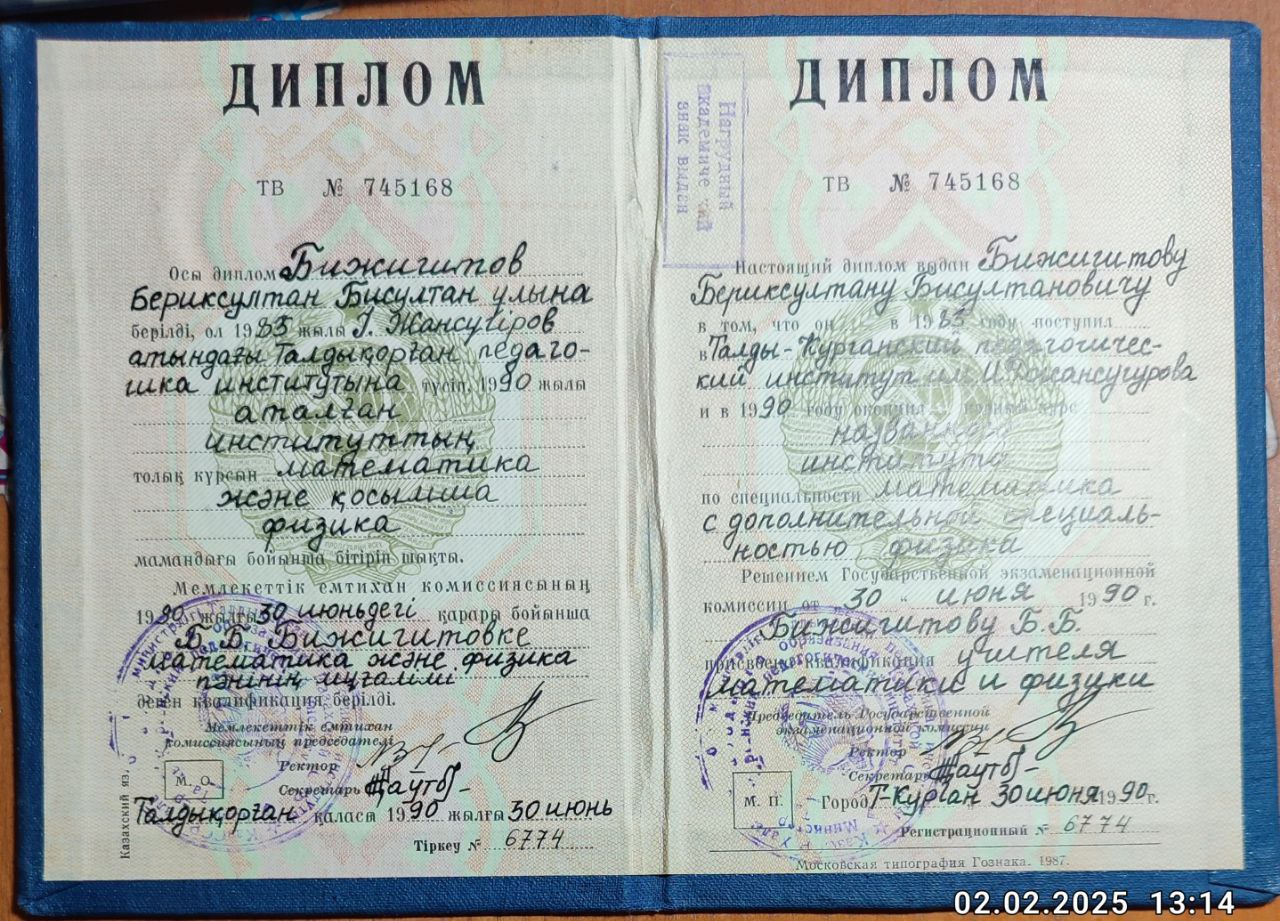 ДИПЛОМ
ТВ № 745168
Осы диплом Бижигитов
Бериксултан Бисултан улына
берілді, ол 1985 жылы І. Жансүгіров
атындағы Талдықорған педаго-
гика институтына түсіп, 1990 жылы
аталған
институттың
толық курсын математика
және қосымша
физика
мамандағы бойынша бітіріп шықты.
Мемлекеттік емтихан комиссиясының
1990 жылғы 30 июньдегі қарары бойынша
Б. Б. Бижигитовке
математика және физика
пәнінің мұғалімі
деген квалификация берілді.
Мемлекеттік емтихан
комиссиясының председателі
Ректор
М. О.
Секретарь
Талдықорған қаласы 1990 жылғы 30 июнь
Тіркеу № 6774
Казахский яз.
Нагрудный
академический
знак выдан
ДИПЛОМ
ТВ № 745168
Настоящий диплом выдан Бижигитову
Бериксултану Бисултановичу
в том, что он в 1985 году поступил
в Талды-Курганский педагогичес-
кий институт им И. Джансугурова
и в 1990 году окончил полный курс
названного
института
по специальности математика
с дополнительной специаль-
ностью физика
Решением Государственной экзаменационной
комиссии от „30“ июня 1990 г.
Бижигитову Б. Б.
присвоена квалификация учителя
математики и физики
Председатель Государственной
экзаменационной комиссии
Ректор
Секретарь
М. П.
Город Т-Курган 30 июня 1990 г.
Регистрационный № 6774
Московская типография Гознака. 1987.
02.02.2025 13:14